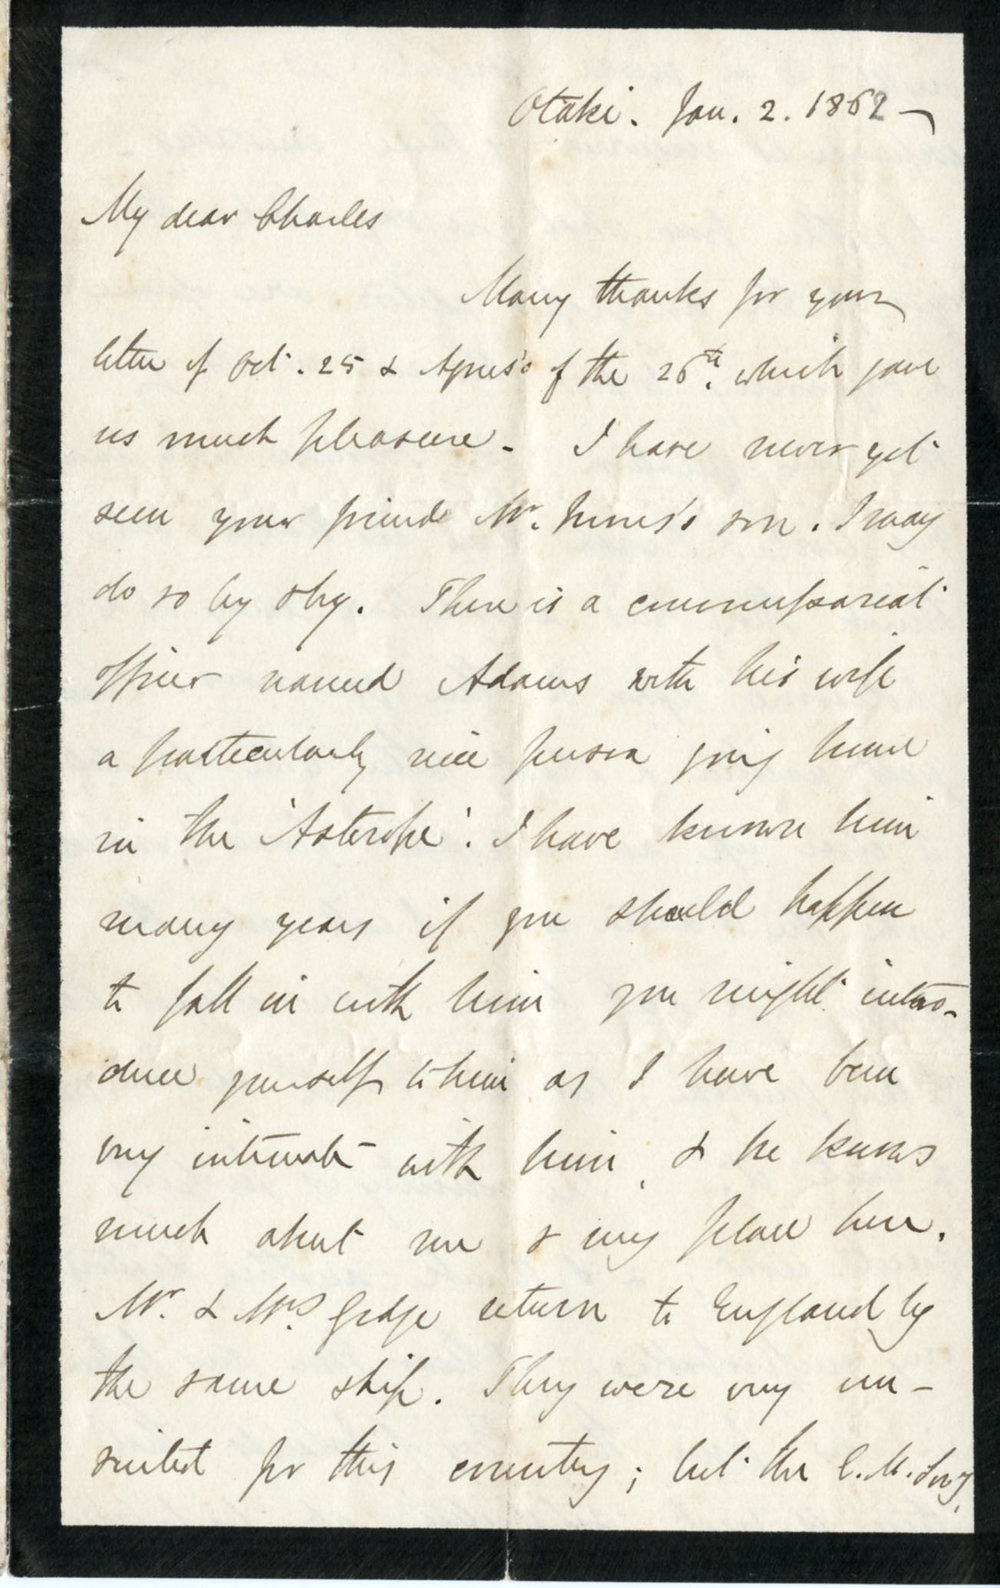 Otaki. Jan. 2. 1862 -
My dear Charles
Many thanks for your
letter of Oct. 25 & Agnes's of the 26th. which gave
us much pleasure - I have never yet
seen your friend Mr. son. I may
do so by & by. There is a commissariat
officer named Adams with his wife
a particularly nice person going home
in the 'Asterope'. I have known him
many years if you should happen
to fall in with him you might intro-
duce yourself to him as I have been
very intimate with him, & he knows
much about me & my place here.
Mr. & Mrs. Gedge return to England by
the same ship. They were very un-
suited for this country; but the C. M. Socy.